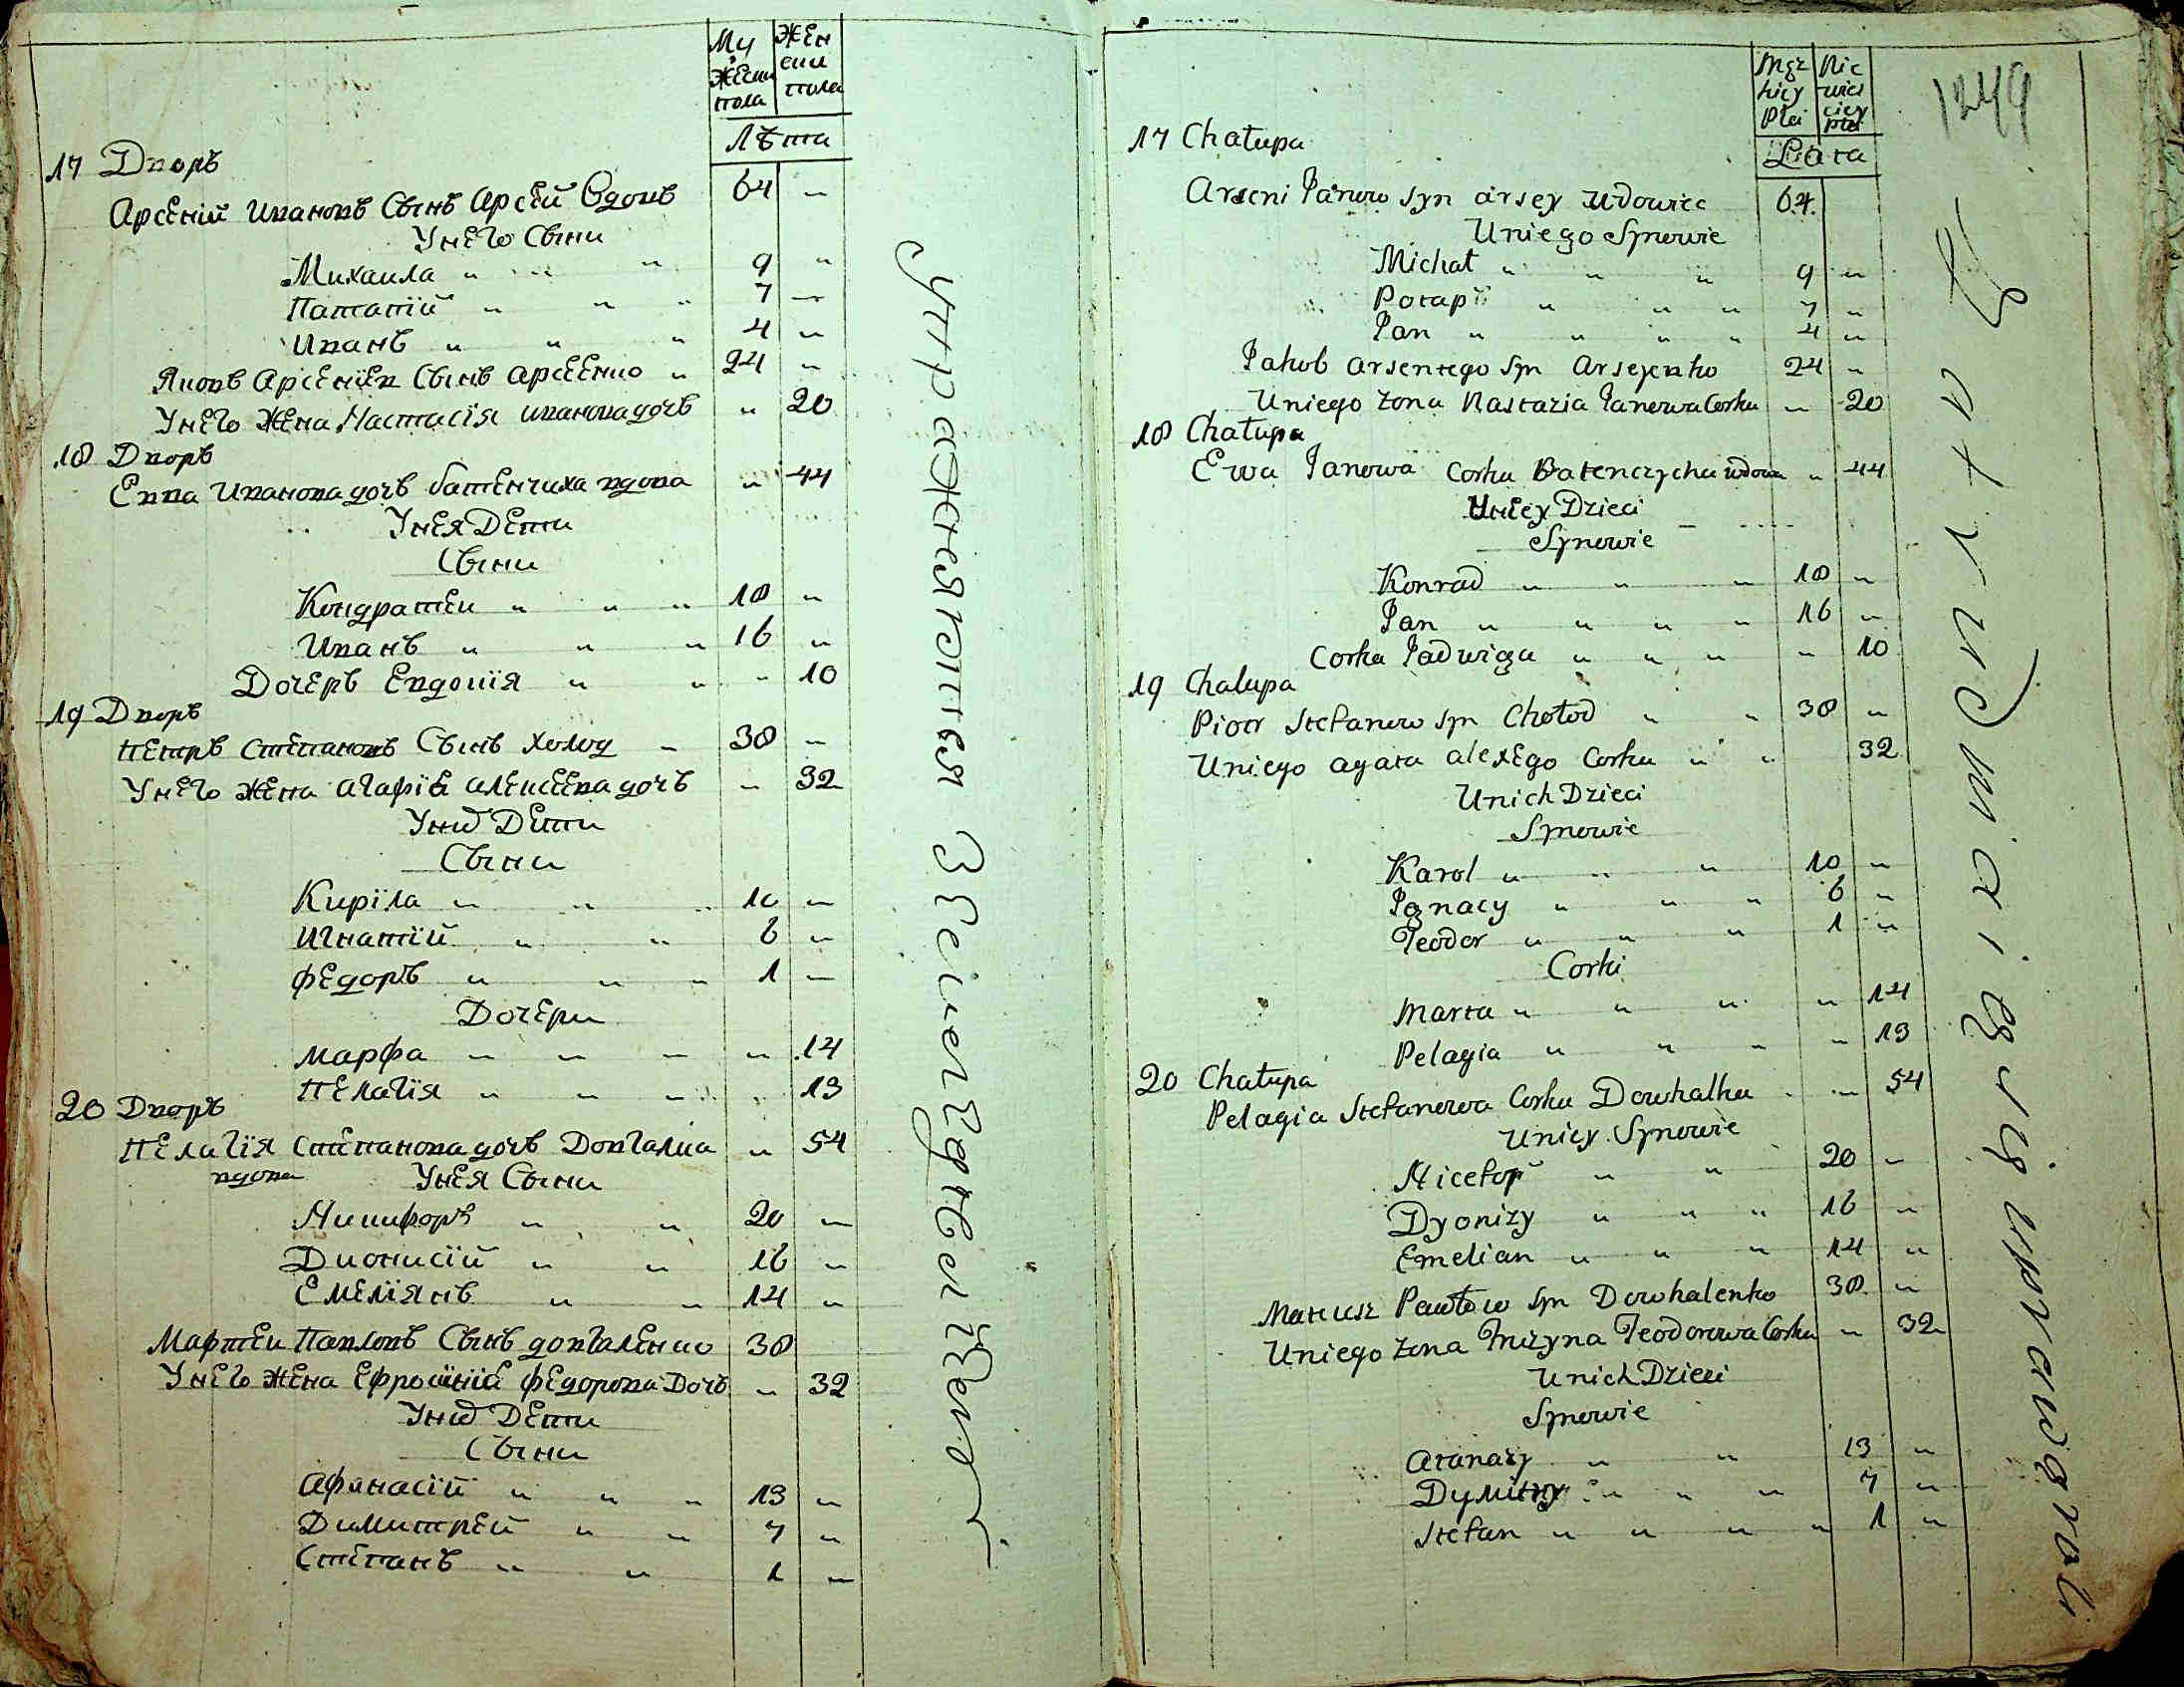 Му
жески
пола
Жен
ски
пола
Лѣта
17 Дворъ
Арсеній Ивановъ Сынъ Арсѣй Вдовъ 64 „
Унего Сыни
Михаила „ „ 9 „
Патапій „ „ „ 7 „
Иванъ „ „ „ 4 „
Яковъ Арсеніев Сынъ Арсеенко „ 24 „
Унего Жена Настасія Иванова дочъ „ 20
18 Дворъ
Евва Иванова дочъ Батенчиха вдова „ 44
Унея Дети
Сыни
Кондратей „ „ „ 18 „
Иванъ „ „ „ 16 „
Дочеръ Евдокія „ „ „ 10
19 Дворъ
Петръ Степановъ Сынъ Холод „ 38 „
Унего жена Агафія Алексеева дочъ „ 32
Унихъ Дети
Сыни
Киріла „ „ „ 10 „
Игнатій „ „ 6 „
Федоръ „ „ „ 1 „
Дочери
Марфа „ „ „ „ 14
Пелагія „ „ „ „ 13
20 Дворъ
Пелагія Степанова дочъ Довгалка „ 54
вдова Унея Сыни
Никифоръ „ „ 20 „
Дионисій „ „ 16 „
Емеліянъ „ „ 14 „
Мартей Павловъ Сынъ довгаленко 38
Унего жена Ефросинія Федорова Дочъ „ 32
Унихъ Дети
Сыни
Афанасій „ „ „ 13 „
Димитрей „ „ 7 „
Степанъ „ „ 1 „
1249
Męz
kicy
Płci
Nie
wies
ciey
płci
Lata
17 Chałupa
Arseni Janow Syn arsey Wdowiec 64.
Uniego Synowie
Michał „ „ „ 9 „
Potapi „ „ „ 7 „
Jan „ „ „ „ 4 „
Jakob Arseniego Syn Arsejenko 24 „
Uniego żona Nastazia Janowa Corka „ 20
18 Chałupa
Ewa Janowa Corka Batenczycha wdowa „ 44
Uniey Dzieci
Synowie
Konrad „ „ „ 18 „
Jan „ „ „ „ 16 „
Corka Jadwiga „ „ „ „ 10
19 Chałupa
Piotr Stefanow Syn Chołod „ „ 38 „
Uniego Agata Alexego Corka „ „ 32
Unich Dzieci
Synowie
Karol „ „ „ 10 „
Ignacy „ „ „ 6 „
Teodor „ „ „ 1 „
Corki
Marta „ „ „ „ 14
Pelagia „ „ „ „ 13
20 Chałupa
Pelagia Stefanowa Corka Dowhalka „ „ 54
Uniey Synowie
Nicefor „ „ 20 „
Dyonizy „ „ „ 16 „
Emelian „ „ „ 14 „
Mateusz Pawłow Syn Dowhalenko 38. „
Uniego żona Teodorowa Corka „ 32
Unich Dzieci
Synowie
Atanazy „ „ 13 „
Dymitry „ „ „ 7 „
Stefan „ „ „ „ 1 „